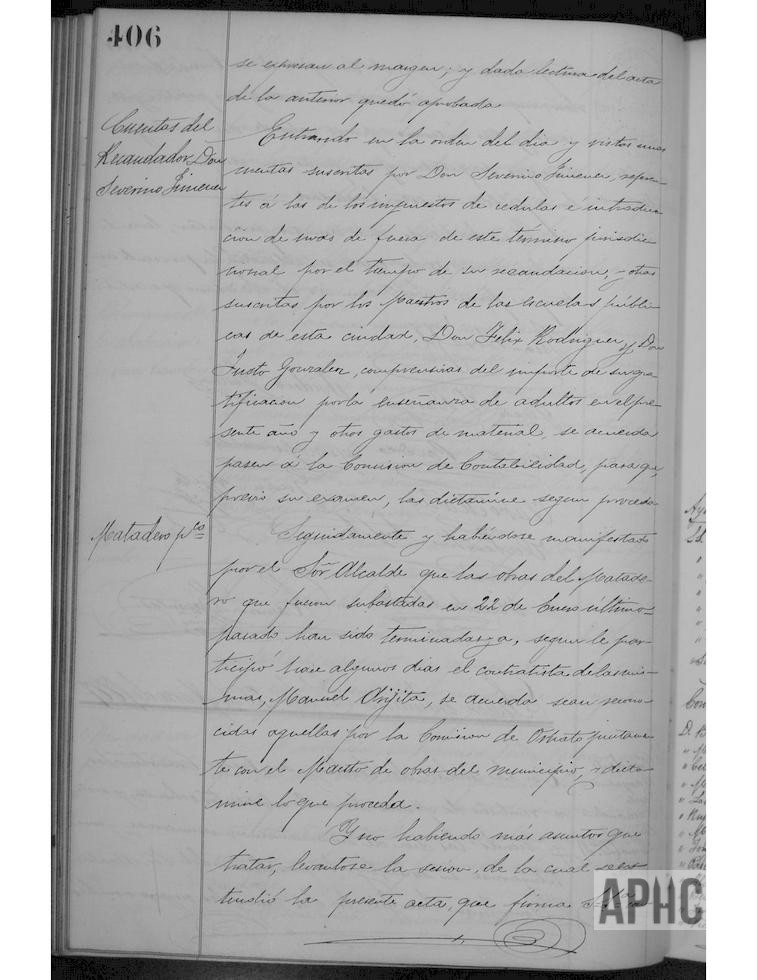 406
se expresan al margen; y dada lectura del acta
de la anterior quedó aprobada
Cuentas del
Recaudador Don
Severino Jimenez
Entrando en la orden del dia y vistas unas
cuentas suscritas por Don Severino Jimenez, referen-
tes á las de los impuestos de cedulas é introduc-
ción de uvas de fuera de este término jurisdic-
cional por el tiempo de su recaudacion, y otras
suscritas por los Maestros de las escuelas públi-
cas de esta ciudad, Don Felix Rodriguez y Don
Justo Gonzalez, comprensivas del importe de su gra-
tificacion por la enseñanza de adultos en el pre-
sente año y otros gastos de material, se acuerda
pasen á la Comision de Contabilidad, para que,
previo su examen, las dictamine segun proceda
Matadero pco
Seguidamente y habiéndose manifestado
por el Sor Alcalde que las obras del Matade-
ro que fueron subastadas en 22 de Enero último
pasado han sido terminadas ya, segun le par-
ticipó hace algunos dias el contratista de las mis-
mas, Manuel, se acuerda sean recono-
cidas aquellas por la Comision de Ornato juntamen-
te con el Maestro de obras del municipio, y dicta-
mine lo que proceda.
Y no habiendo más asuntos que
tratar, levantose la sesion, de la cual se es-
tendió la presente acta, que firma
APHC